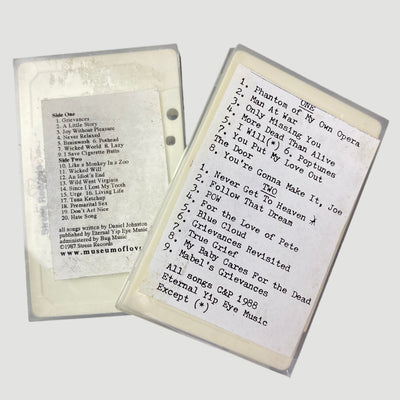 Side One
1. Grievances
2. A Little Story
3. Joy Without Pleasure
4. Never Relaxed
5. Brainwash 6. Pothead
7. Wicked World 8. Lazy
9. I Save Cigarette Butts
Side Two
10. Like a Monkey In a Zoo
11. Wicked Will
12. An Idiot's End
13. Wild West Virginia
14. Since I Lost My Tooth
15. Urge 16. Living Life
17. Tuna Ketchup
18. Premarital Sex
19. Don't Act Nice
20. Hate Song
all songs written by Daniel Johnston
published by Eternal Yip Eye Music
administered by Bug Music
©1987 Stress Records
www.museumoflov
ONE
1. Phantom of My Own Opera
2. Man At War
3. Only Missing You
4. More Dead Than Alive
5. I Will(*) 6. Poptunes
7. You Put My Love Out
The Door
8. You're Gonna Make It, Joe
TWO
1. Never Get To Heaven
2. Follow That Dream
3. POW
4. For the Love of Pete
5. Blue Cloud
6. Grievances Revisited
7. True Grief
8. My Baby Cares For the Dead
9. Mabel's Grievances
All songs C&P 1988
Eternal Yip Eye Music
Except (*)